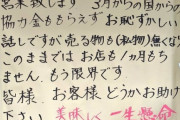 営業致します 3月からの国からの
協力金ももう底 お恥ずかしい
話しですが売る物も(私物)無くな
このままではお店も1ヵ月もち
ません。もう限界です。
皆様、お客様どうかお助け
下さい 美味しく一生懸命